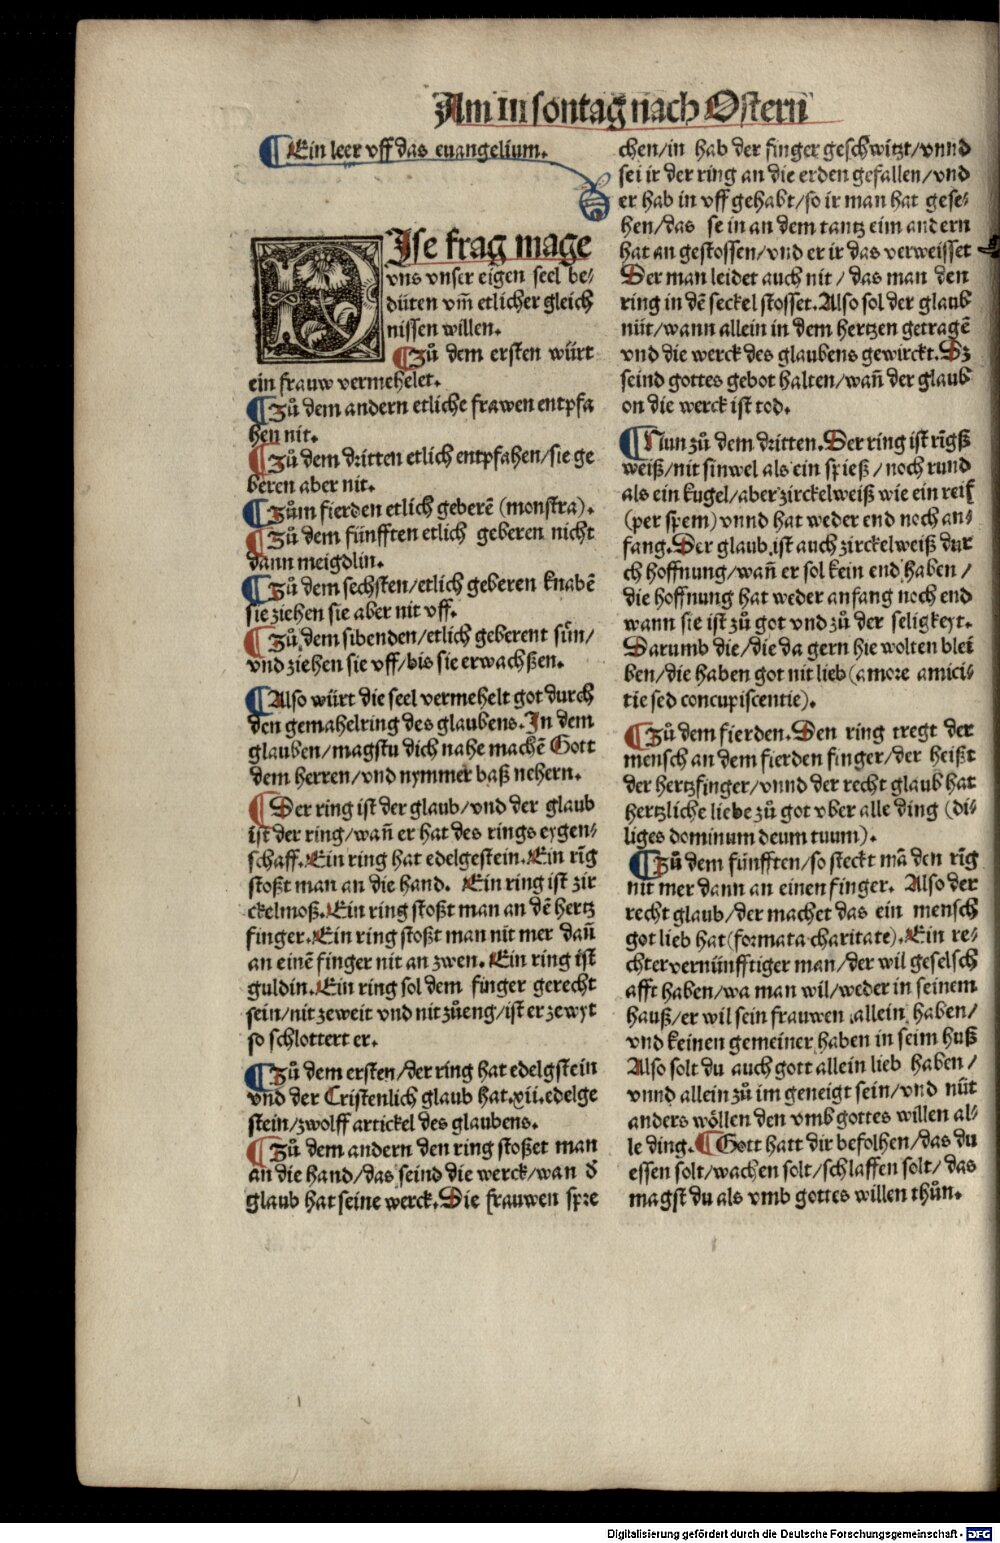 Am III sontag nach Ostern
¶ Ein leer vff das euangelium.
DJse frag mage
vns vnser eigen seel be⸗
düten vm̃ etlicher gleich
nissen willen.
¶ Zů dem ersten würt
ein frauw vermehelet.
¶ Zů dem andern etliche frawen entpfa
hen nit.
¶ Zů dem dritten etlich entpfahen/sie ge
beren aber nit.
¶ Zům fierden etlich geberẽ (monstra).
¶ Zů dem fünfften etlich geberen nicht
dann meigdlin.
¶ Zů dem sechsten/etlich geberen knabẽ
sie ziehen sie aber nit vff.
¶ Zů dem sibenden/etlich geberent sün/
vnd ziehen sie vff/bis sie erwachßen.
¶ Also würt die seel vermehelt got durch
den gemahelring des glaubens. In dem
glauben/magstu dich nahe machẽ Gott
dem herren/vnd nymmer baß nehern.
¶ Der ring ist der glaub/vnd der glaub
ist der ring/wañ er hat des rings eygen⸗
schaff. Ein ring hat edelgestein. Ein rĩg
stoßt man an die hand. Ein ring ist zir
ckelmoß. Ein ring stoßt man an dẽ hertz
finger. Ein ring stoßt man nit mer dañ
an einẽ finger nit an zwen. Ein ring ist
guldin. Ein ring sol dem finger gerecht
sein/nit zeweit vnd nit zůeng/ist er zewyt
so schlottert er.
¶ Zů dem ersten/der ring hat edelgstein
vnd der Cristenlich glaub hat.xii.edelge
stein/zwolff artickel des glaubens.
¶ Zů dem andern den ring stoßet man
an die hand/das seind die werck/wan d̕
glaub hat seine werck. Die frauwen spre
chen/in hab der finger geschwitzt/vnnd
sei ir der ring an die erden gefallen/vnd
er hab in vff gehabt/so ir man hat gese⸗
hen/das se in an dem tantz eim andern
hat an gestossen/vnd er ir das verweisset
Der man leidet auch nit/ das man den
ring in dẽ seckel stosset. Also sol der glaub
nüt/wann allein in dem hertzen getragẽ
vnd die werck des glaubens gewirckt. Dz
seind gottes gebot halten/wañ der glaub
on die werck ist tod.
¶ Nun zů dem dritten. Der ring ist rĩgß
weiß/nit sinwel als ein spieß/noch rund
als ein kugel/aber zirckelweiß wie ein reif
(per sp̃em) vnnd hat weder end noch an⸗
fang. Der glaub ist auch zirckelweiß dur
ch hoffnung/wañ er sol kein end haben/
die hoffnung hat weder anfang noch end
wann sie ist zů got vnd zů der seligkeyt.
Darumb die/die da gern hie wolten bleĩ
ben/die haben got nit lieb (amore amici⸗
tie sed concupiscentie).
¶ Zů dem fierden. Den ring tregt der
mensch an dem fierden finger/der heißt
der hertzfinger/vnnd der recht glaub hat
hertzliche liebe zů got vber alle ding (di⸗
liges dominum deum tuum).
¶ Zů dem fünfften/so steckt mã den rĩg
nit mer dann an einen finger. Also der
recht glaub/der machet das ein mensch
got lieb hat (formata charitate). Ein re⸗
chter vernünfftiger man/der wil geselsch
afft haben/wa man wil/weder in seinem
hauß/er wil sein frauwen allein haben/
vnd keinen gemeiner haben in seim huß
Also solt du auch gott allein lieb haben/
vnnd allein zů im geneigt sein/vnd nüt
anders wöllen den vmb gottes willen al⸗
le ding. ¶ Gott hatt dir befolhen/das du
essen solt/wachen solt/schlaffen solt/das
magst du als vmb gottes willen thůn.
Digitalisierung gefördert durch die Deutsche Forschungsgemeinschaft - DFG